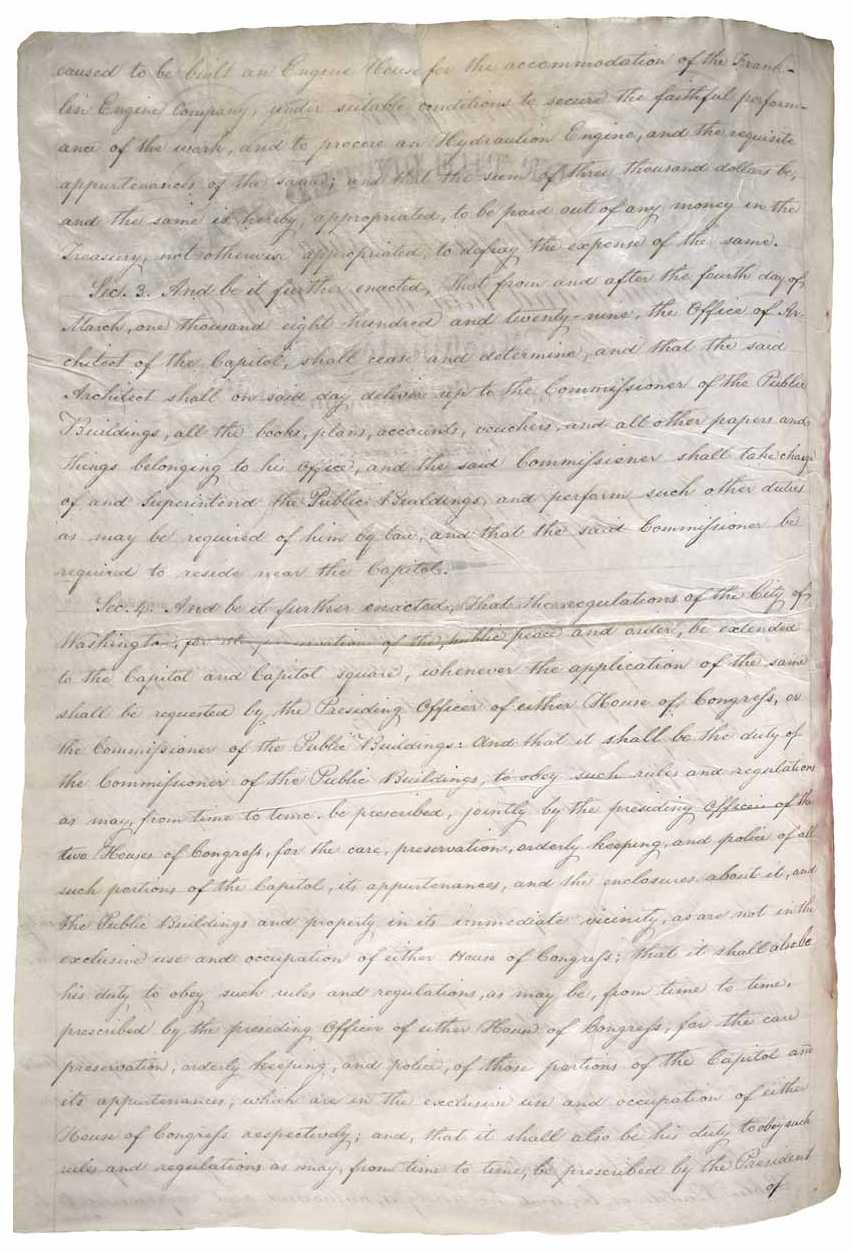 caused to be built an Engine House for the accommodation of the Frank-
lin Engine Company, under suitable conditions to secure the faithful perform-
ance of the work, and to procure an Hydraulion Engine, and the requisite
appurtenances of the same; and that the sum of three thousand dollars be,
and the same is hereby, appropriated, to be paid out of any money in the
Treasury, not otherwise appropriated, to defray the expense of the same.
Sec. 3. And be it further enacted, That from and after the fourth day of
March, one thousand eight hundred and twenty-nine, the Office of Ar-
chitect of the Capitol, shall cease and determine, and that the said
Architect shall on said day, deliver up to the Commissioner of the Public
Buildings, all the books, plans, accounts, vouchers, and all other papers and
things belonging to his office, and the said Commissioner shall take charge
of and Superintend the Public Buildings, and perform such other duties
as may be required of him by law, and that the said Commissioner be
required to reside near the Capitol.
Sec. 4. And be it further enacted, That the regulations of the City of
Washington, for the preservation of the public peace and order, be extended
to the Capitol and Capitol square, whenever the application of the same
shall be requested by the Presiding Officer of either House of Congress, or
the Commissioner of the Public Buildings: And that it shall be the duty of
the Commissioner of the Public Buildings, to obey such rules and regulations
as may, from time to time be prescribed, jointly by the presiding Officers of the
two Houses of Congress, for the care, preservation, orderly keeping, and police of all
such portions of the Capitol, its appurtenances, and the enclosures about it, and
the Public Buildings and property in its immediate vicinity, as are not in the
exclusive use and occupation of either House of Congress; that it shall also be
his duty to obey such rules and regulations, as may be, from time to time,
prescribed by the presiding Officer of either House of Congress, for the care
preservation, orderly keeping, and police, of those portions of the Capitol and
its appurtenances, which are in the exclusive use and occupation of either
House of Congress respectively; and, that it shall also be his duty to obey such
rules and regulations as may, from time to time, be prescribed by the President
of